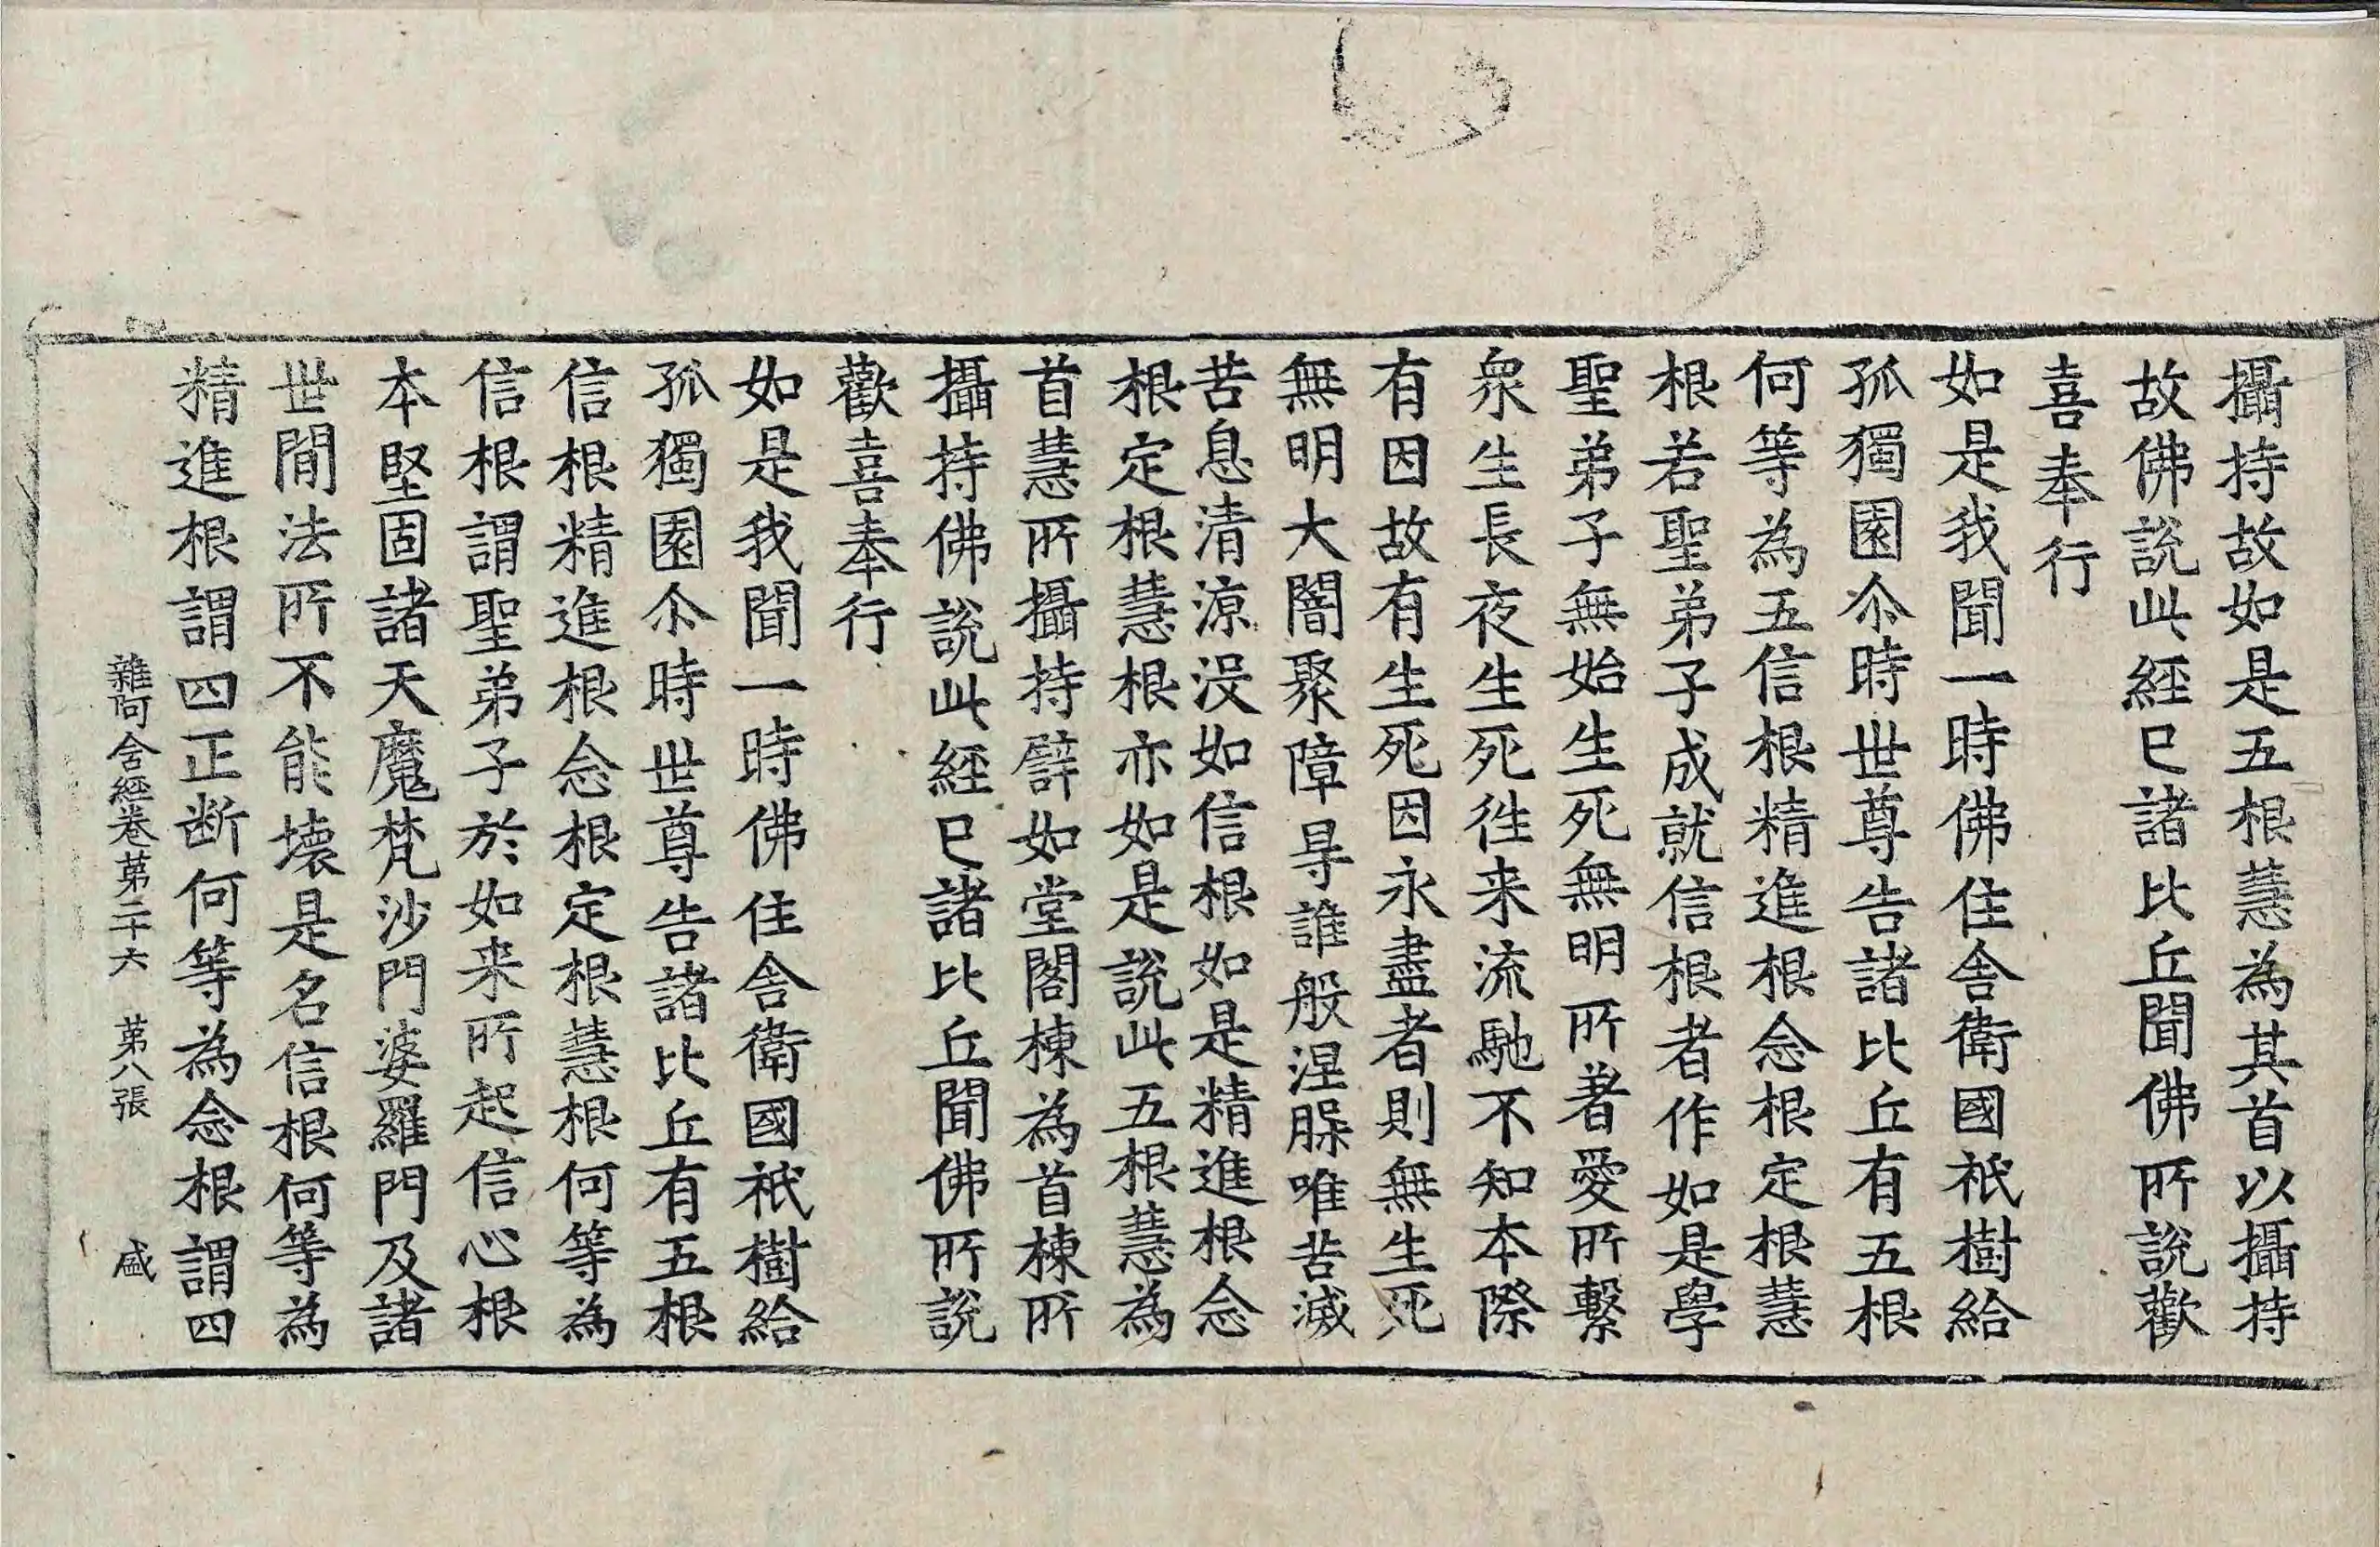 攝持故如是五根慧為其首以攝持
故佛說此經已諸比丘聞佛所說歡
喜奉行
如是我聞一時佛住舍衛國祇樹給
孤獨園尒時世尊告諸比丘有五根
何等為五信根精進根念根定根慧
根若聖弟子成就信根者作如是學
聖弟子無始生死無明所著愛所繫
衆生長夜生死徃来流馳不知本際
有因故有生死因永盡者則無生死
無明大闇聚障㝵誰般涅槃唯苦滅
苦息清涼没如信根如是精進根念
根定根慧根亦如是說此五根慧為
首慧所攝持譬如堂閣棟為首棟所
攝持佛說此經已諸比丘聞佛所說
歡喜奉行
如是我聞一時佛住舍衛國祇樹給
孤獨園尒時世尊告諸比丘有五根
信根精進根念根定根慧根何等為
信根謂聖弟子於如来所起信心根
本堅固諸天魔梵沙門婆羅門及諸
世間法所不能壞是名信根何等為
精進根謂四正断何等為念根謂四
雜阿含經卷苐二十六 苐八張 盛